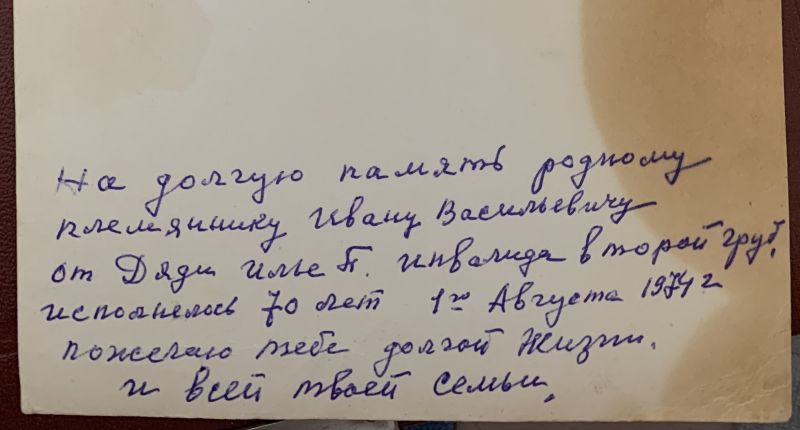 На долгую память родному
племяннику Ивану Васильевичу
от Дяди Илье П. инвалида второй груп.
исполнелось 70 лет 1го Августа 1974 г
пожелаю тебе долгой Жизни.
и всей твоей семьи.